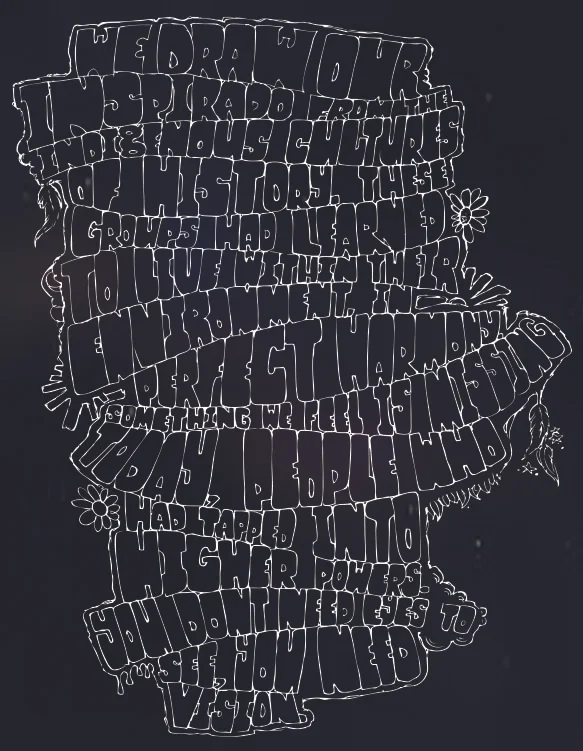 WE DRAW OUR
INSPIRADO FROM THE
INDIGENOUS CULTURES
OF HISTORY. THESE
GROUPS HAD LEARNED
TO LIVE WITHIN THEIR
ENVIRONMENT IN
PERFECT HARMONY,
SOMETHING WE FEEL IS MISSING
TODAY, PEOPLE WHO
HAD TAPPED INTO
HIGHER POWERS.
YOU DONT NEED EYES TO
SEE, YOU NEED
VISION.